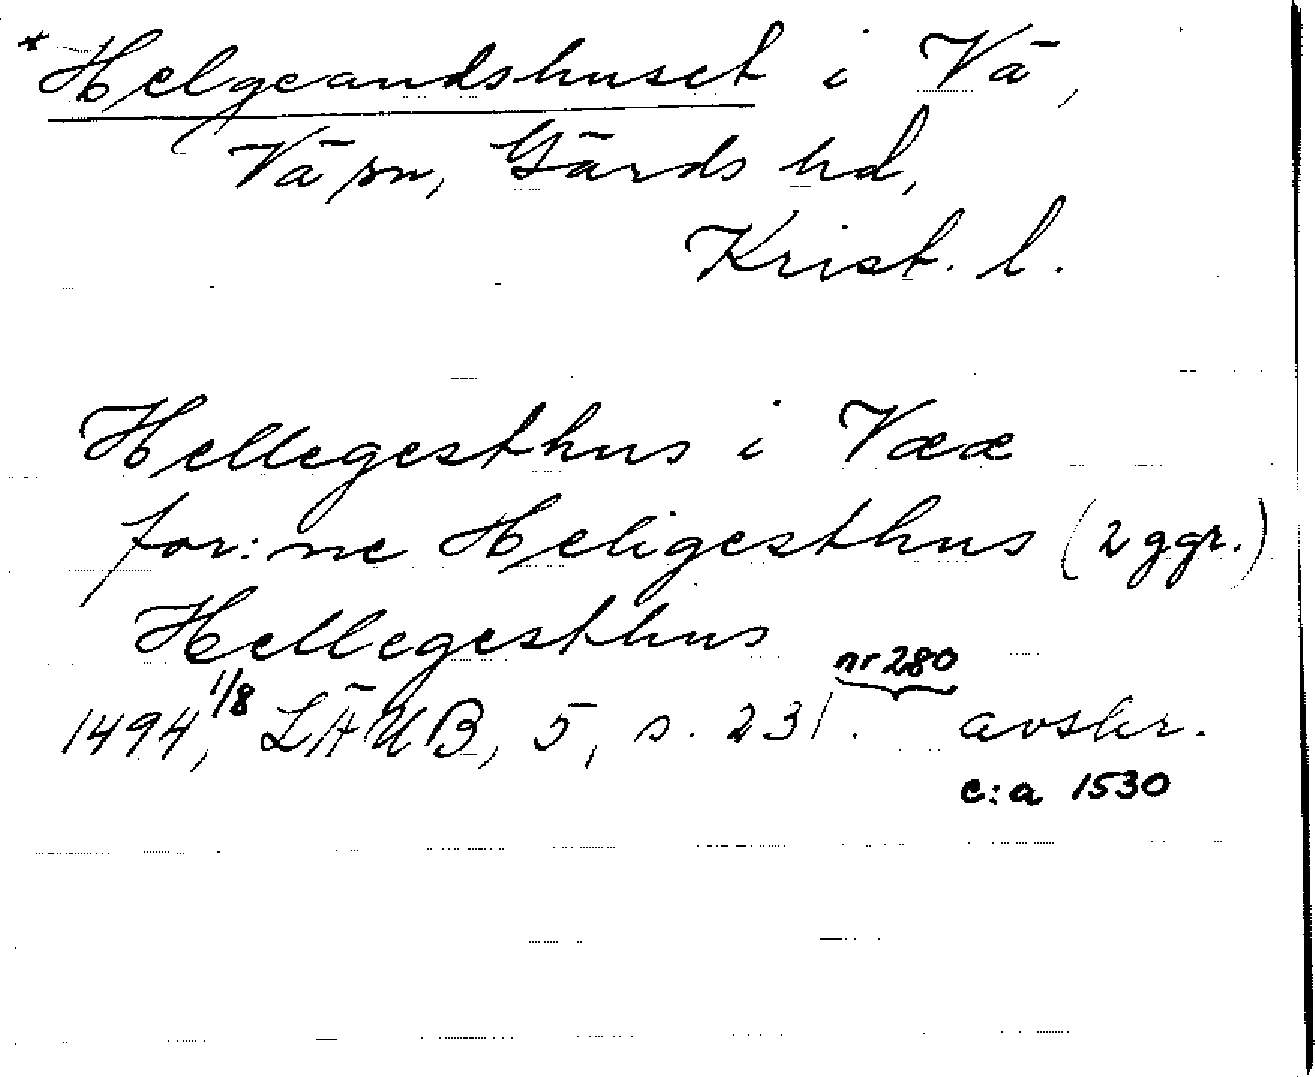 *Helgeandshuset i Vä,
Vä sn, Gärds hd,
Krist. l.
Hellegesthus i Vææ
for:ne Heligesthus (2 ggr.)
Hellegesthus
1494, 1/8 LÄUB, 5, s. 231. nr 280 avskr.
c:a 1530